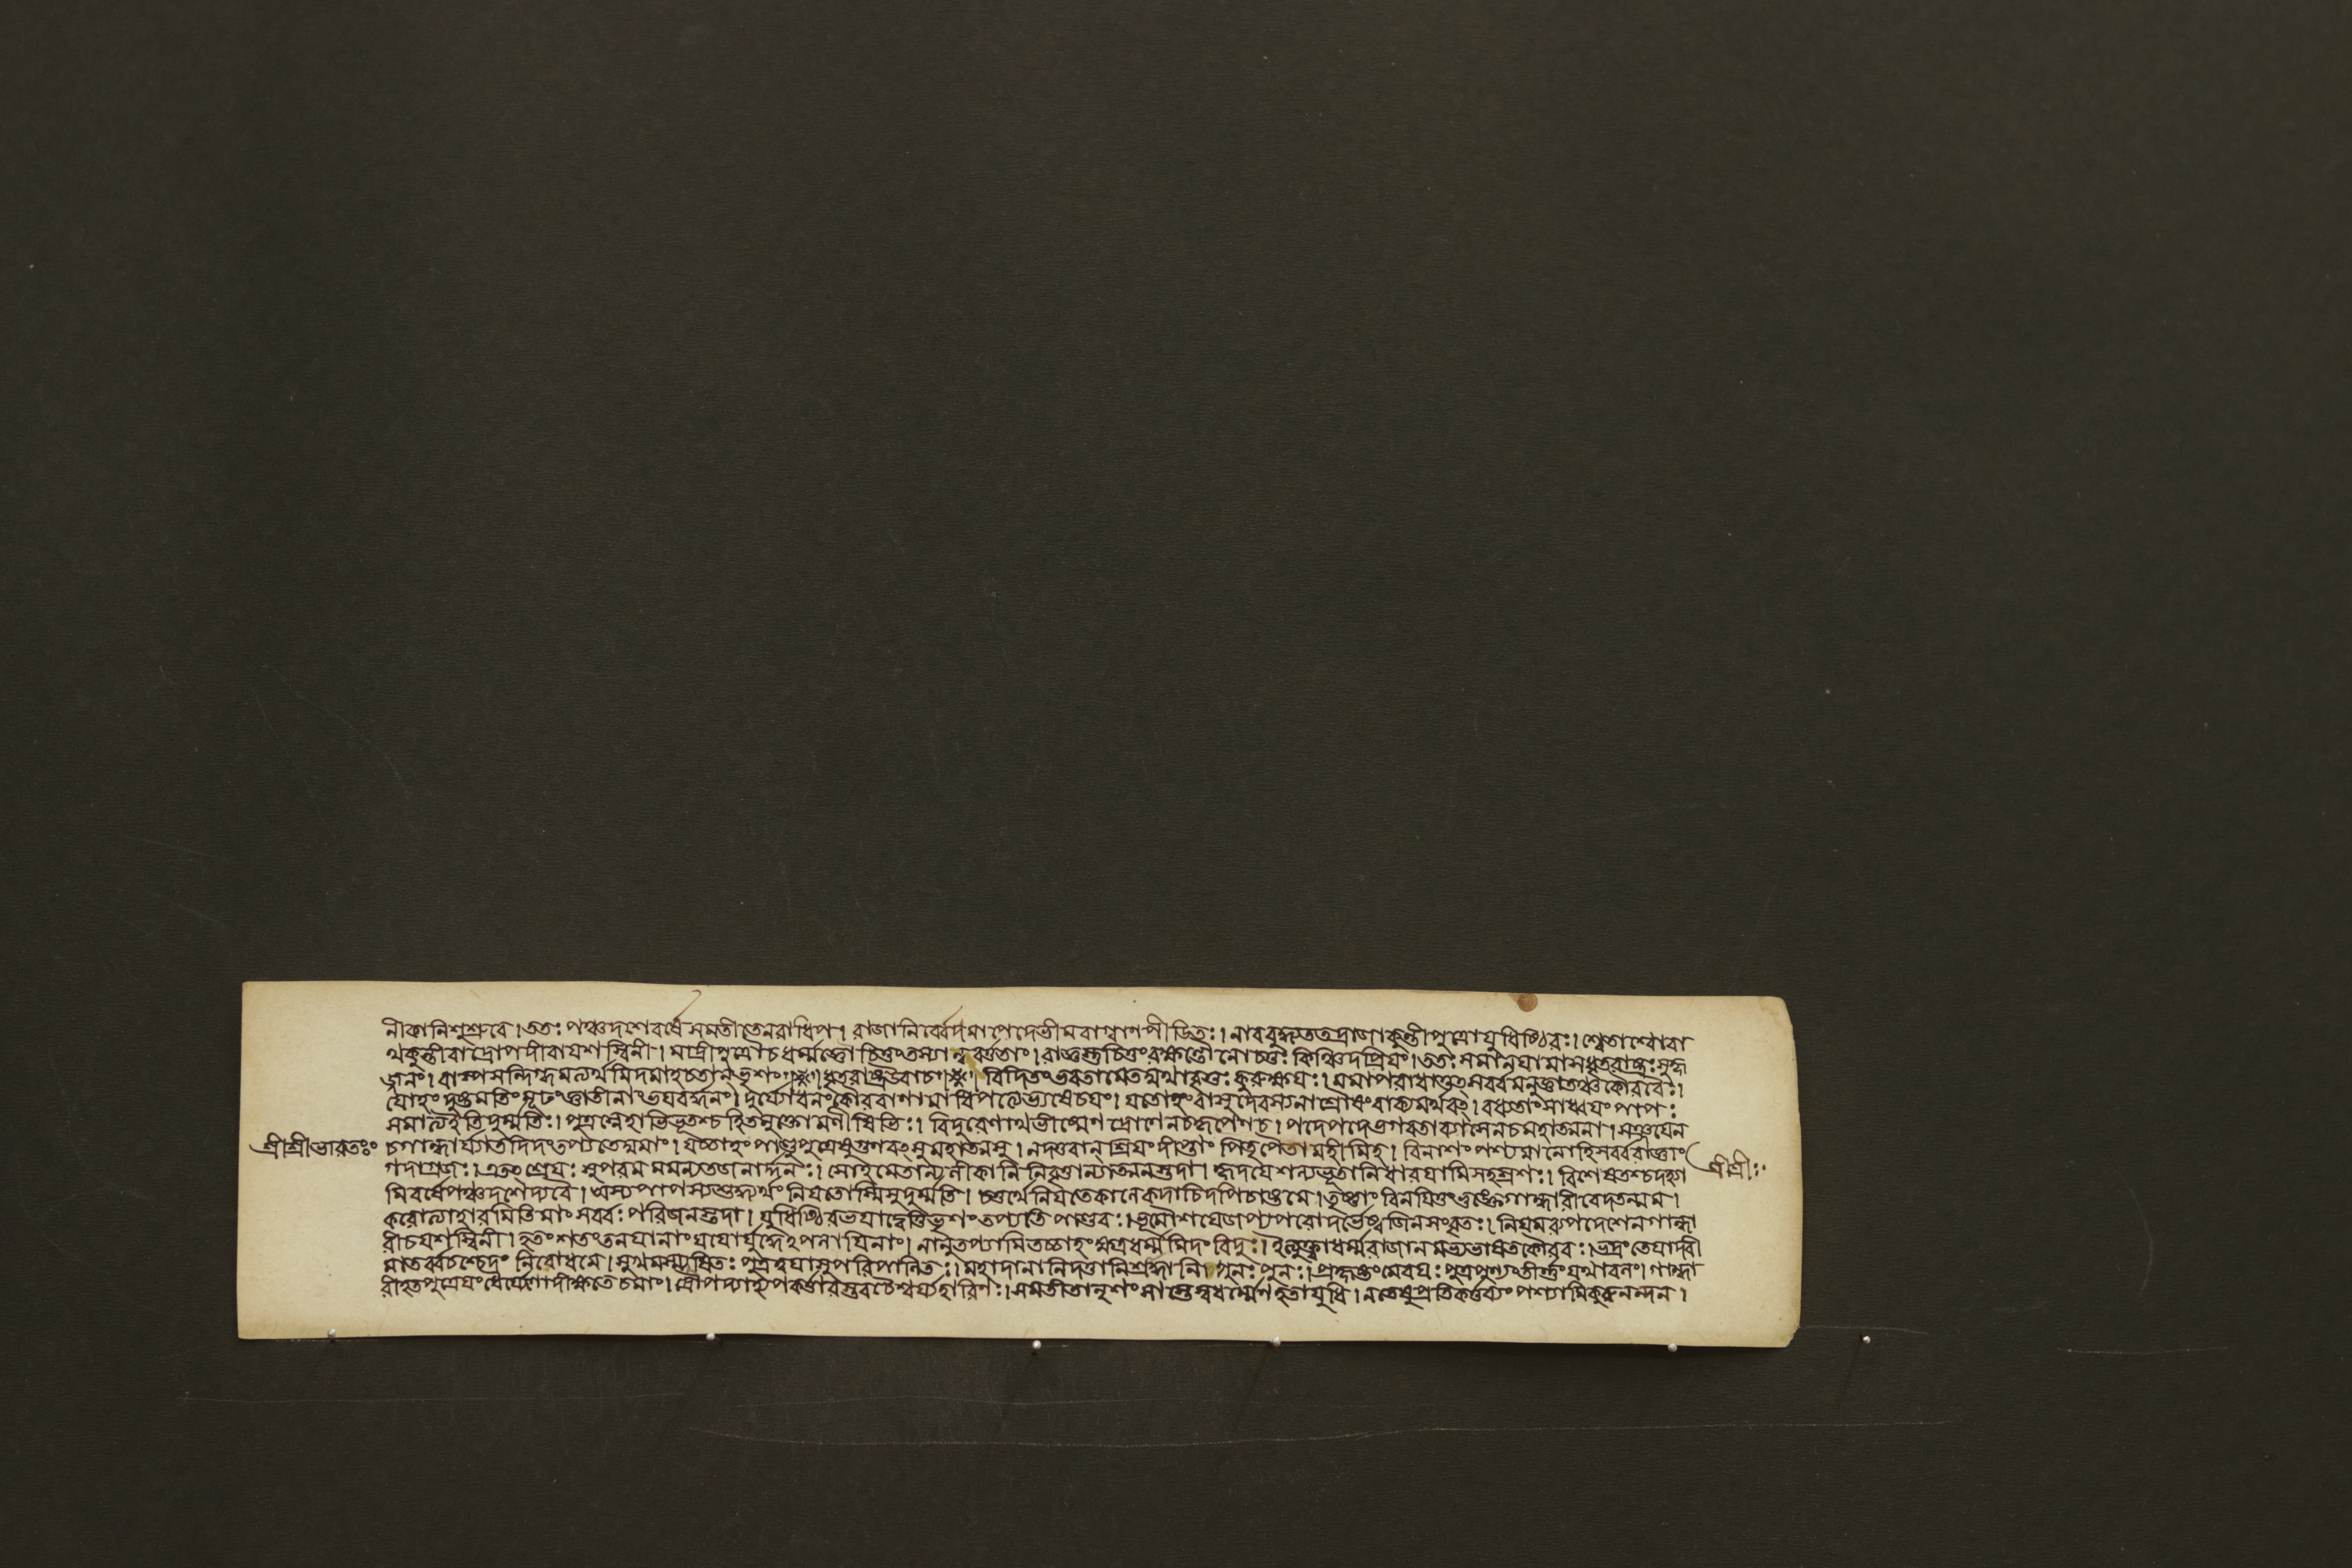 নীকানিশুশ্রুবে।ততঃ পঞ্চদশেবর্ষে সমতীতেনরাধিপ। রাজানির্ব্বেদমাপেদেভীমবাগ্বাণপীডিতঃ। নাববুদ্ধ্যততদ্রাজাকুন্তীপুত্রোযুধিষ্ঠিরঃ। শ্বেতাশ্বোবা
থকুন্তীবাদ্রৌপদীবাযশস্বিনী। মাদ্রীপুত্রৌচধর্ম্মজ্ঞৌ চিত্তংতস্যান্ববর্ত্ততাং। রাজ্ঞস্তুচিত্তংরক্ষন্তৌ নোচতুঃ কিঞ্চিদপ্রিযং। ততঃ সমানযামাসধৃতরাষ্ট্রঃ সুহৃ
জ্জনং। বাস্পসন্দিগ্ধমত্যর্থমিদমাহচতান্ ভৃশং। ধৃতরাষ্ট্রউবাচ। বিদিতংভবতামেতদ্যথাবৃত্তঃ কুরুক্ষযঃ। মমাপরাধাত্তৎসর্ব্বমনুজ্ঞাতঞ্চকৌরবৈঃ।
যোহং দুষ্টমতিং মূঢংজ্ঞাতীনাংভযবর্দ্ধনং। দুর্য্যোধনংকৌরবাণামাধিপত্যেভ্যষেচযং। যতোহংবাসুদেবস্যনাশ্রৌষংবাক্যমর্থবৎ। বধ্যতাংসাধ্বযংপাপঃ
সমাত্যইতিদুর্ম্মতিঃ। পুত্রস্নেহাভিভূতশ্চ হিতমুক্তোমণীষিভিঃ। বিদুরেণাথভীষ্মেণ দ্রোণেনচকৃপেণচ। পদেপদেভগবতাব্যাসেনচমহাত্মনা। সঞ্জযেন
শ্রীশ্রীভারতঃ চগান্ধার্য্যাতদিদংতপ্যতেস্মমাং। যচ্চাহংপাণ্ডুপুত্রেষুগুণবৎসুমহাত্মসু। নদত্তবান্ শ্রিযংদীপ্তাং পিতৃপৈতামহীমিহ। বিনাশংপশ্যমানোহিসর্ব্বরাজ্ঞাং
গদাগ্রজঃ। এতৎ শ্রেযঃ সুপরমমমন্যতজনার্দ্দনঃ। সোহমেতান্যনীকানি নিবৃত্তান্যাত্মনস্তদা। হৃদযেশল্যভূতানিধারযামিসহস্রশঃ। বিশেষতশ্চদহ্যা শ্রীশ্রীঃ
মিবর্ষেপঞ্চদশেদ্যবৈ। অস্যপাপস্যশুদ্ধ্যর্থং নিযতোস্মিসুদুর্ম্মতি। চতুর্থেনিযতেকালেকদাচিদপিচাষ্টমে। তৃষ্ণাংবিনযিতুংভুঞ্জেগান্ধারীবেদতন্মম।
করোত্যাহারমিতিমাং সর্ব্বঃ পরিজনস্তদা। যুধিষ্ঠিরভযাদ্বেত্তিভৃশংতপ্যতি পাণ্ডবঃ। ভূমৌশযেজপ্যপরোদর্ভেষ্বজিনসংবৃতঃ। নিযমব্যপদেশেনগান্ধা
রীচযশস্বিনী। হতংশতংতনযানাংযযোর্যুদ্ধেঽপলাযিনাং। নানুতপ্যামিতচ্চাহংক্ষত্রধর্ম্মমিদং বিদুঃ। ইত্যুক্ত্বাধর্ম্মরাজানমভ্যভাষতকৌরবঃ। ভদ্রং তেযাদবী
মাতর্ব্বচশ্চেদং নিবোধমে। সুখমস্ম্যুষিতঃ পুত্রত্বযাসুপরিপালিতঃ। মহাদানানিদত্তানিশ্রাদ্ধানি পুনঃপুনঃ। প্রকৃষ্টংমেবযঃ পুত্রপুণ্যংচীর্ণ্ণংযথাবলং। গান্ধা
রীহতপুত্রেযংধৈর্য্যেণোদীক্ষতে চমাং। দ্রৌপদ্যাহ্যপকর্ত্তারস্তবচৈশ্বর্য্যহারিণঃ। সমতীতানৃশংসাস্তেস্বধর্ম্মেণহতাযুধি। নতেষুপ্রতিকর্ত্তব্যংপশ্যামিকুরুনন্দন।